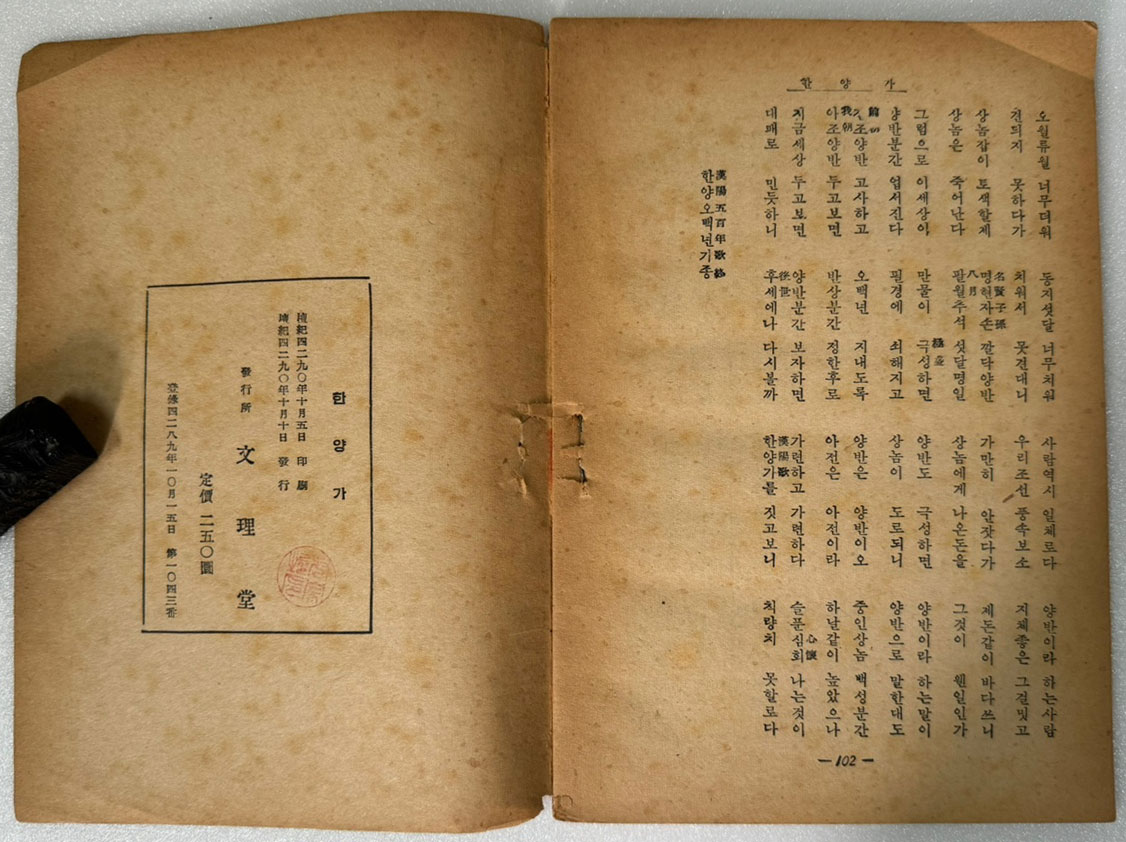 한양가
오월류월 너무더워 동지섯달 너무처워 사람역시 일체로다 양반이라 하는사람
견듸지 못하다가 치워서 못견대니 우리조선 풍속보소 지체좋은 그걸밋고
名賢子孫
상놈잡이 토색할제 명현자손 깔닥양반 가만히 안잣다가 제돈같이 바다쓰니
八月
상놈은 죽어난다 팔월추석 섯달명일 상놈에게 나온돈을 그것이 웬일인가
그럼으로 이세상이 만물이 극성하면 양반도 극성하면 양반이라 하는말이
양반분간 업서진다 필경에 쇠해지고 상놈이 도로되니 양반으로 말한대도
조양반 고사하고 오백년 지내도록 양반은 양반이오 중인상놈 백성분간
我朝
아조양반 두고보면 반상분간 정한후로 아전은 아전이라 하날같이 높았으나
心懷
지금세상 두고보면 양반분간 보자하면 가련하고 가련하다 슬푼심회 나는것이
後世 漢陽歌
대패로 민듯하니 후세에나 다시볼까 한양가를 짓고보니 칙량치 못할로다
漢陽五百年歌終
한양오백년기종
—102—
한양가
檀紀四二九〇年十月五日 印刷
檀紀四二九〇年十月十日 發行
發行所 文理堂
定價 二五〇圜
登錄四二八九年一〇月一五日 第一〇四三番